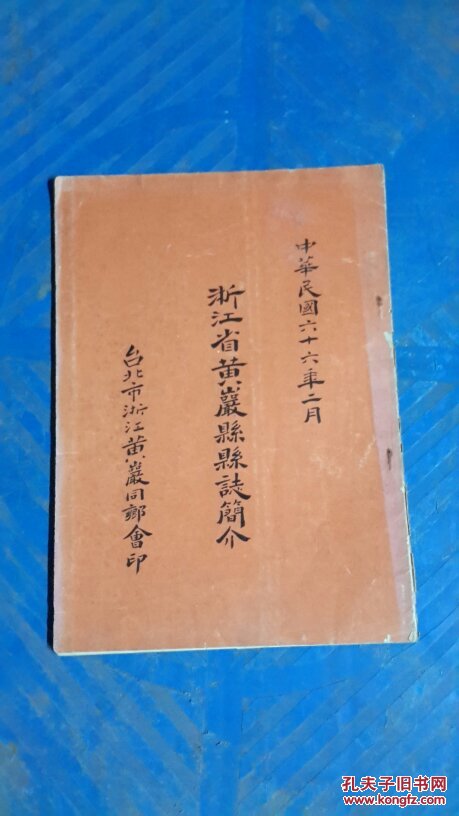 中華民國六十六年二月
浙江省黄巖縣縣誌簡介
台北市浙江黄巖同鄉會印
孔夫子旧书网
www.kongfz.com